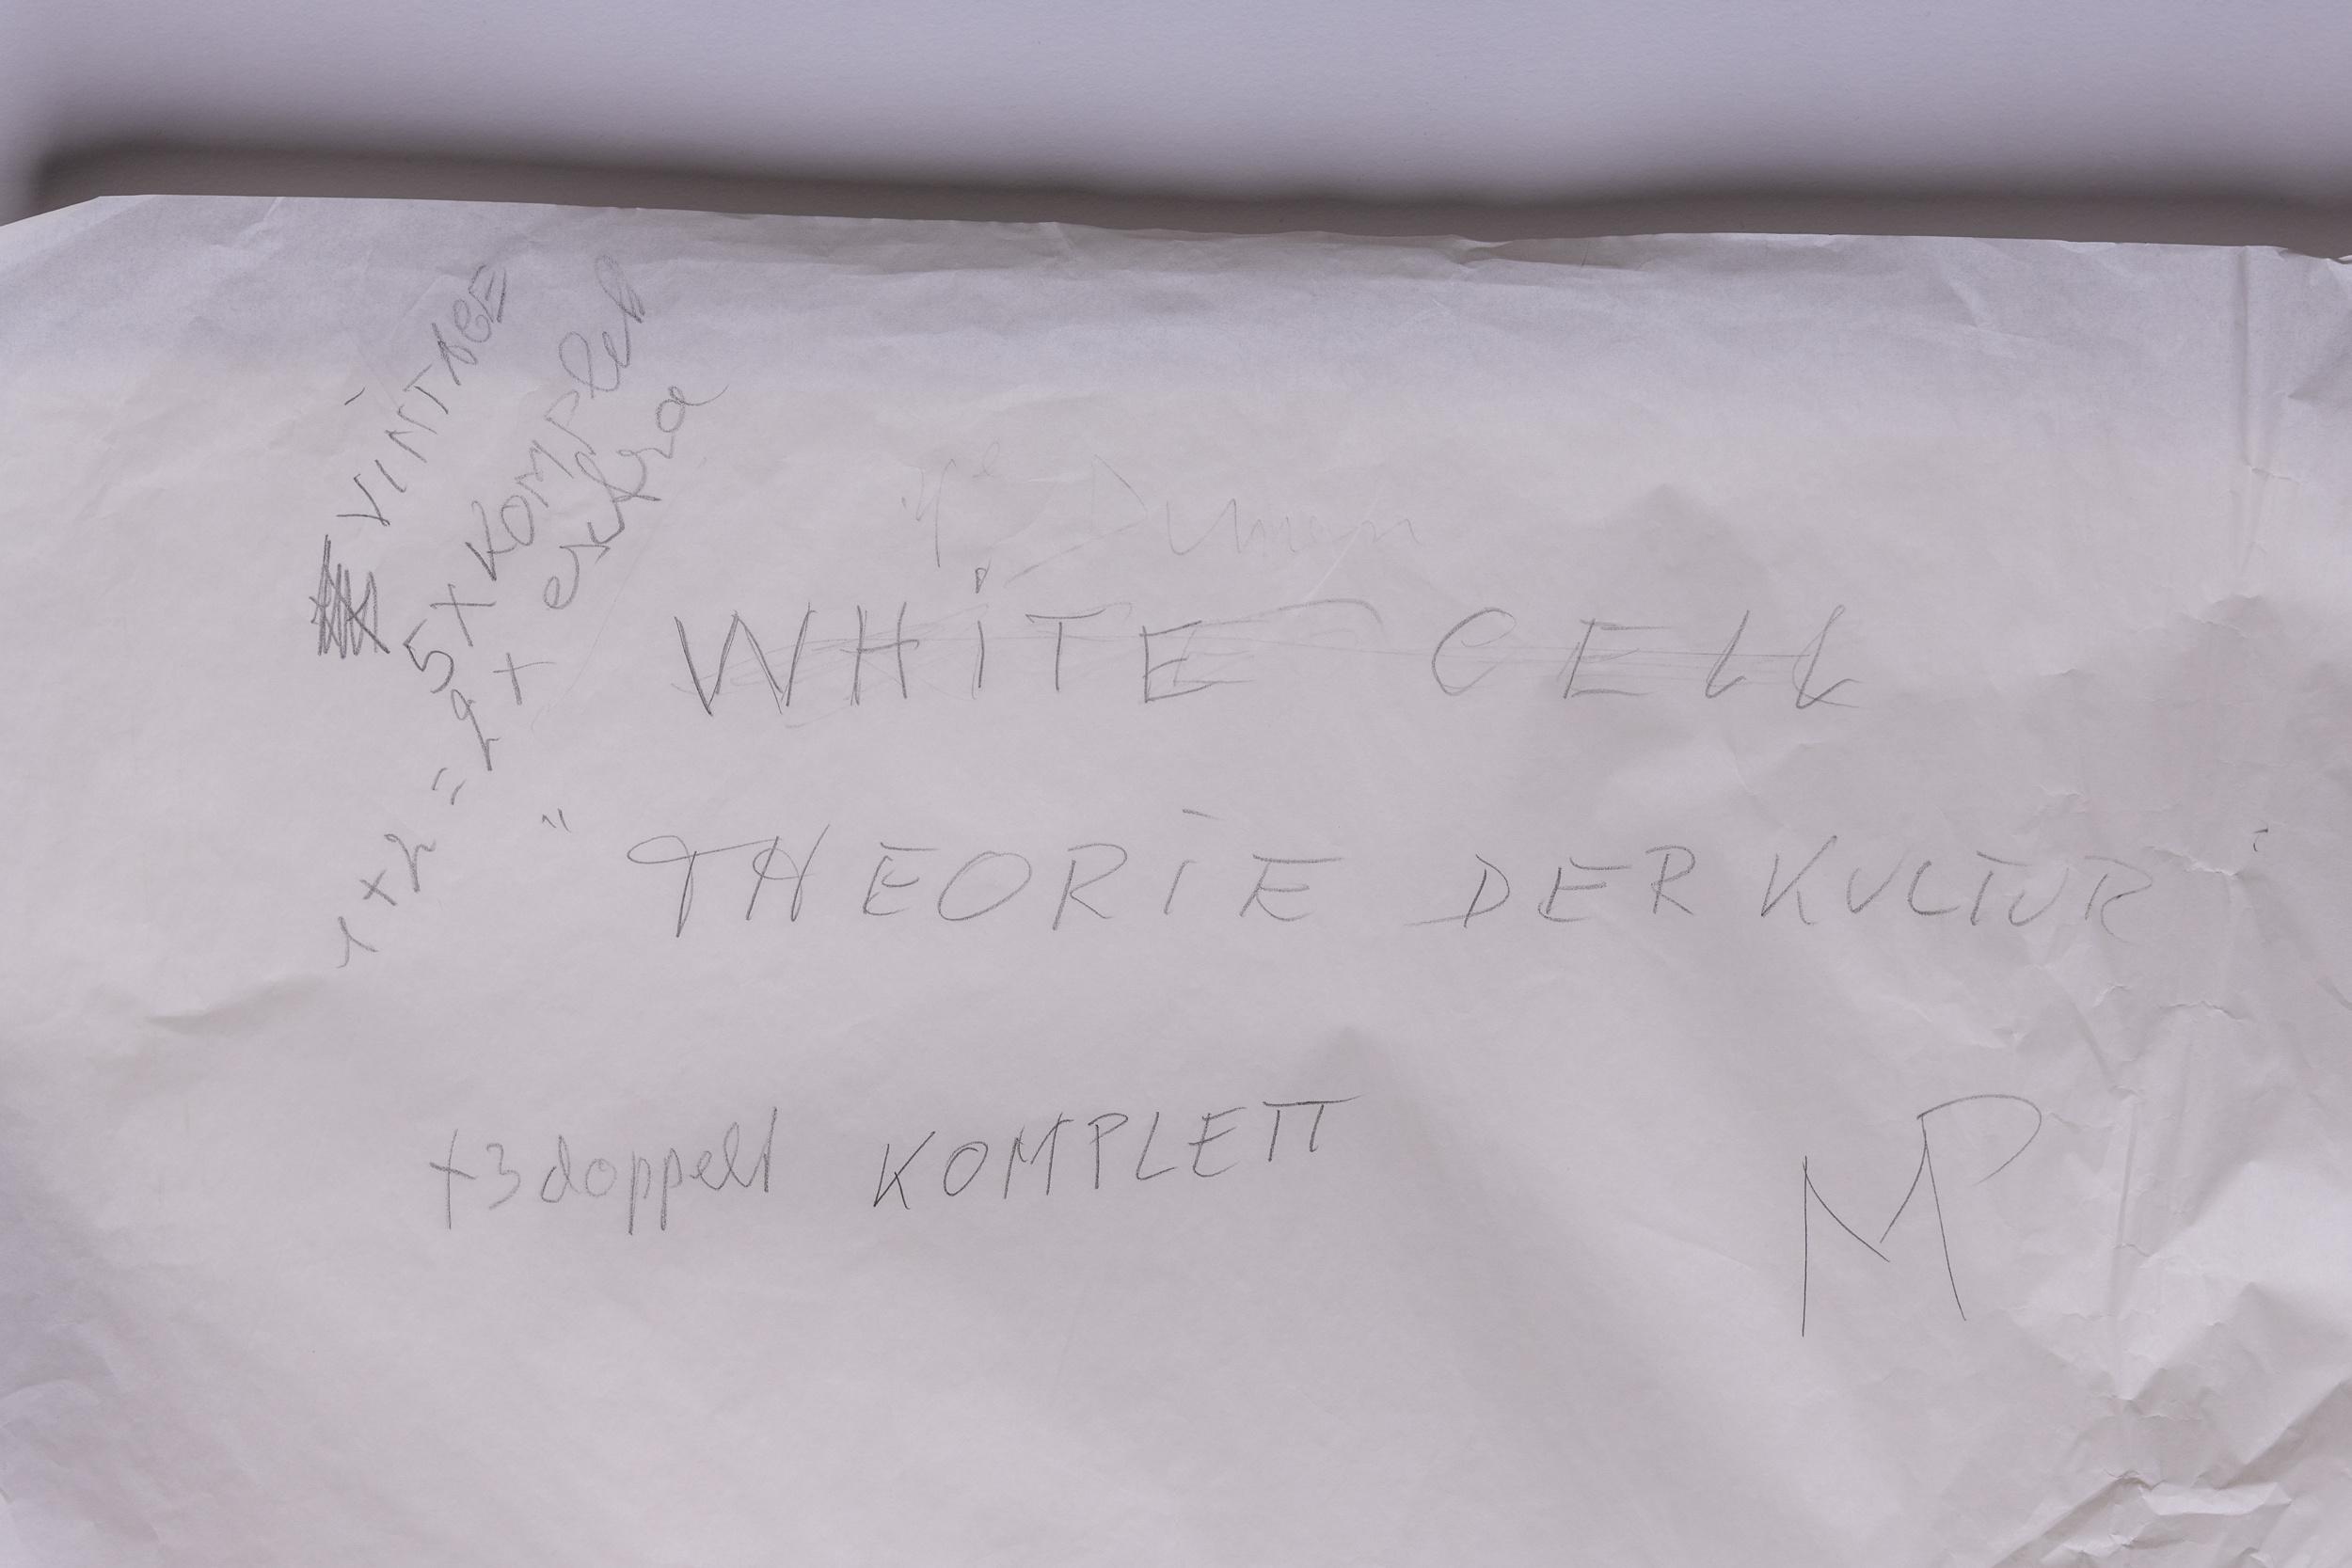 VINTAGE
5x Komplett
1 + 2 = 2 + extra
WHiTE CELL
"THEORIE DER KULTUR"
+3 doppelt KOMPLETT
MP